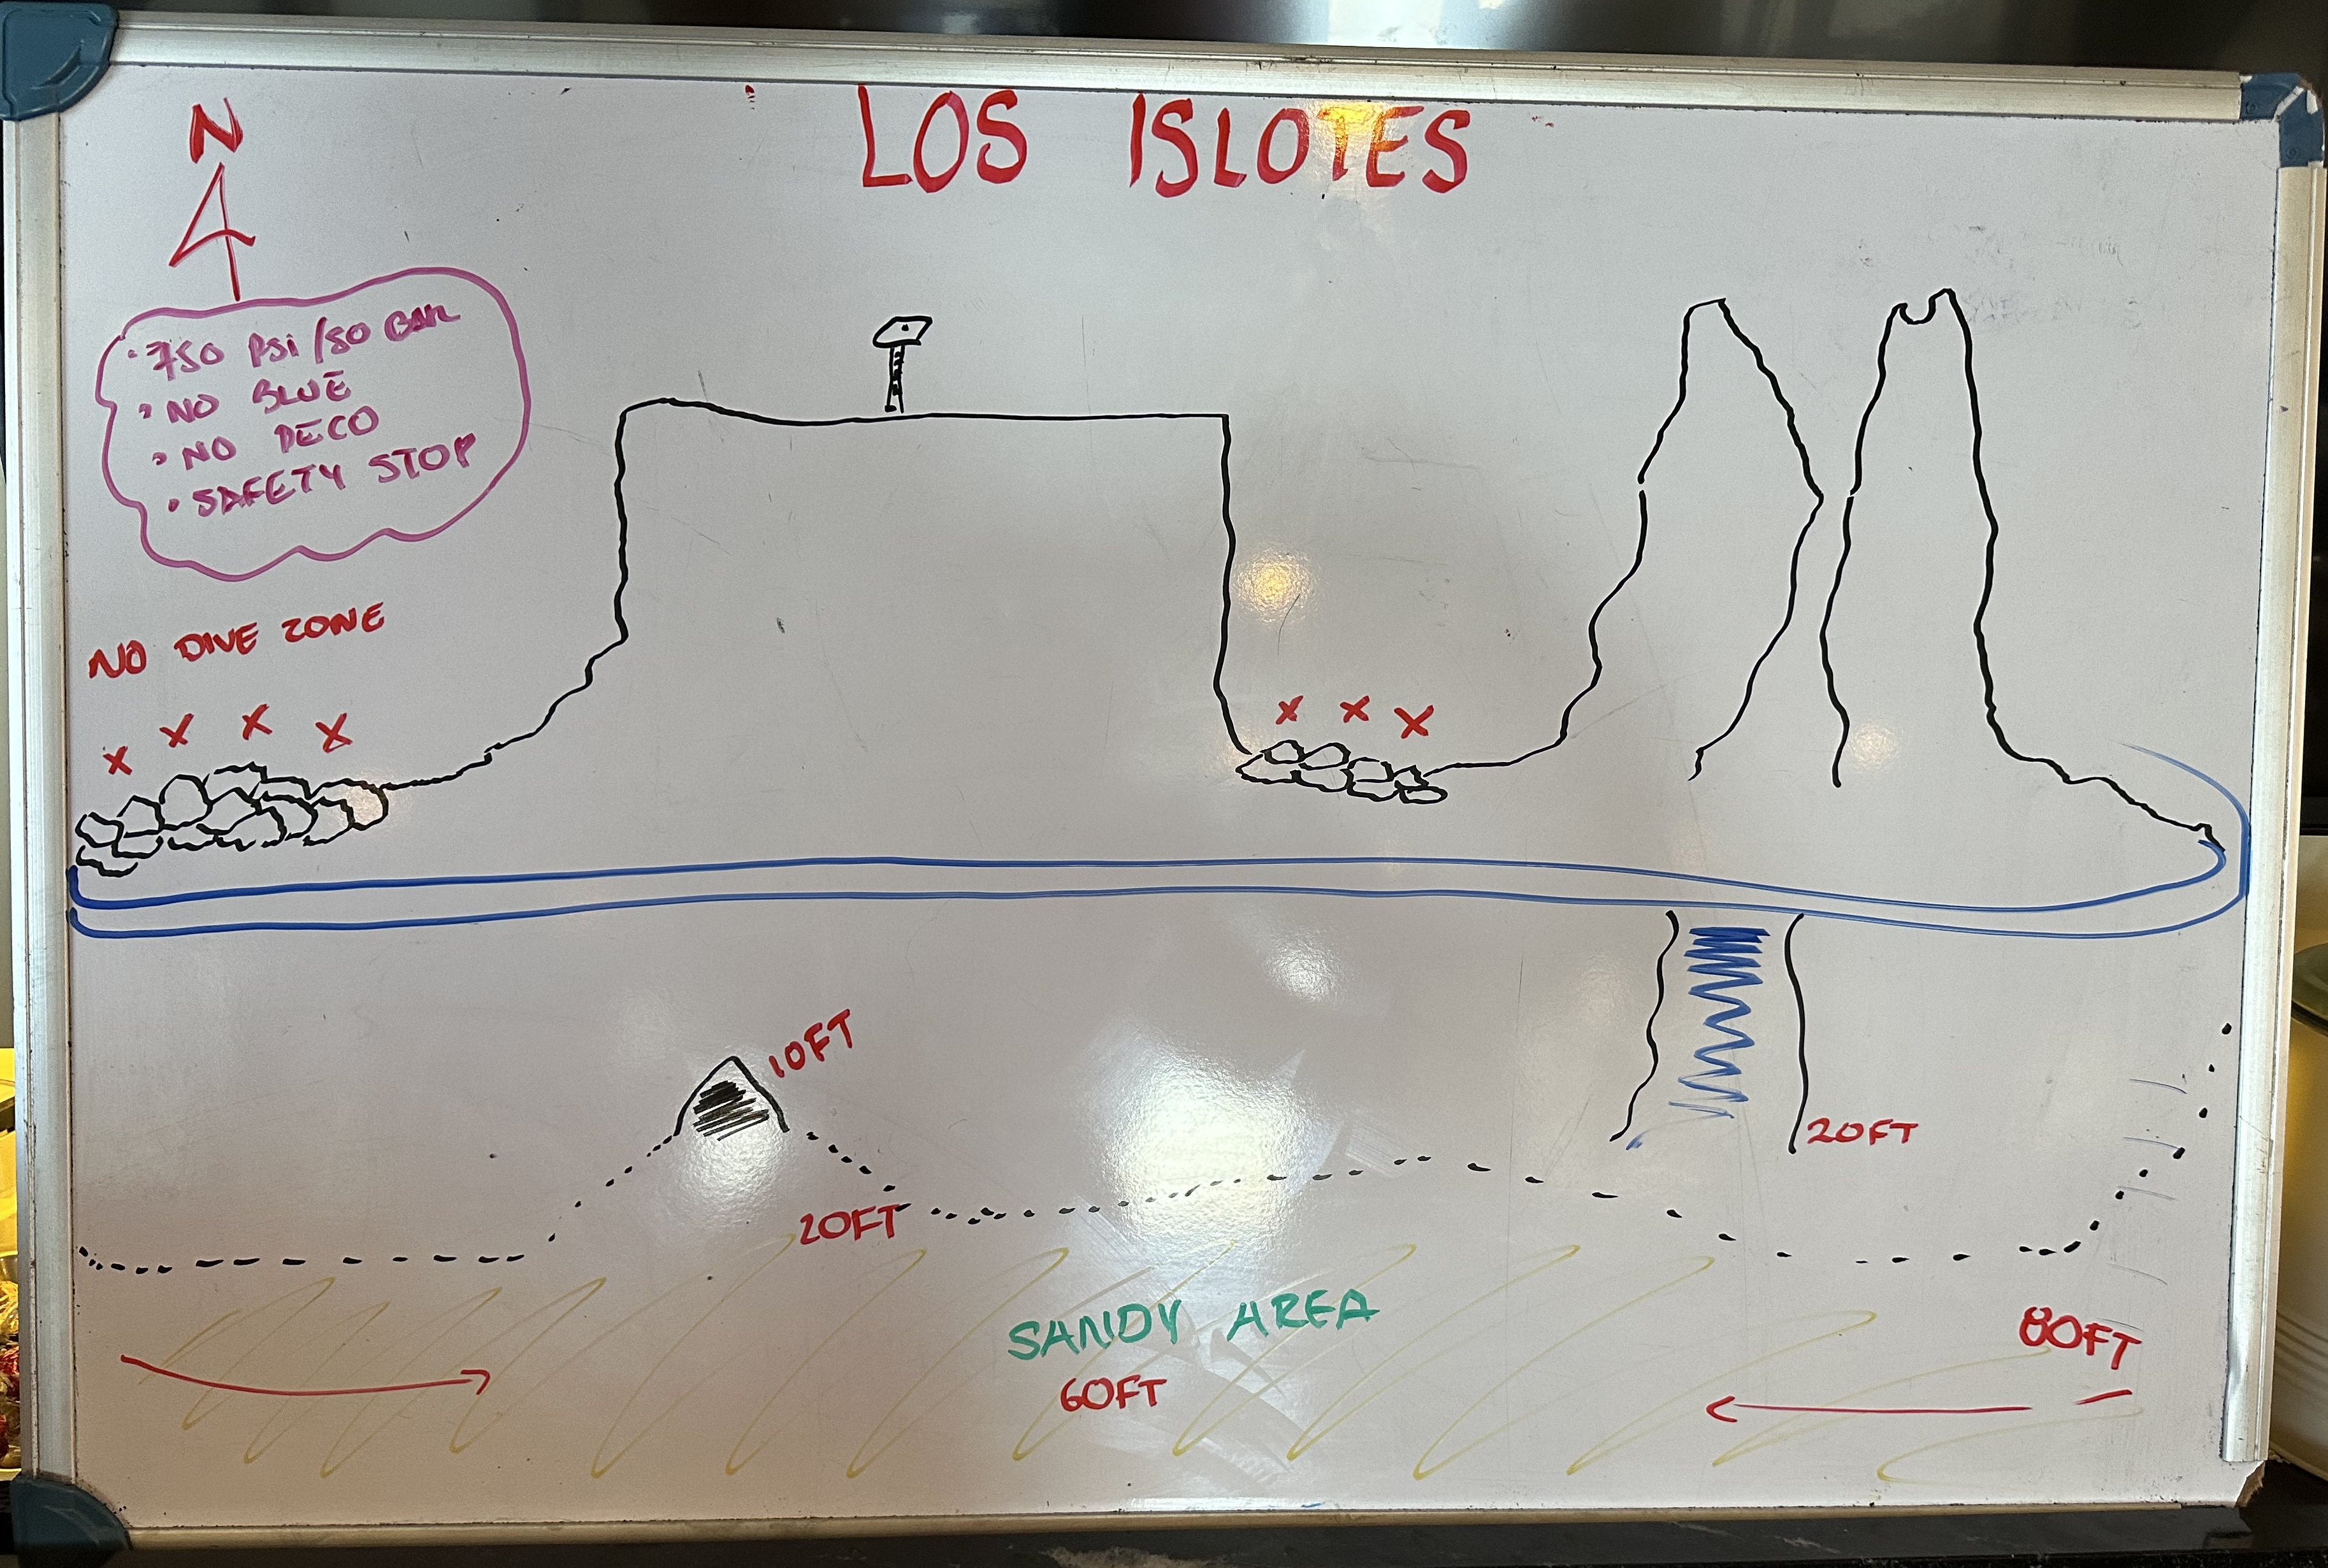 LOS ISLOTES
N
• 750 PSI/50 BAR
• NO BLUE
• NO DECO
• SAFETY STOP
NO DIVE ZONE
X X X X
X X X
10FT
20FT
20FT
SANDY AREA
60FT
80FT